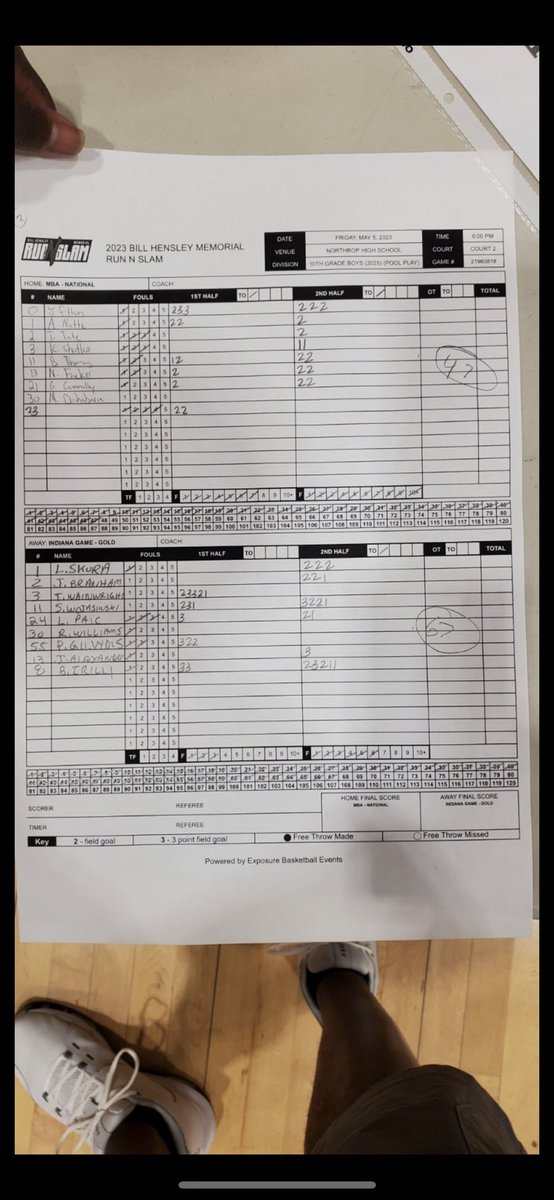 BILL HENSLEY MEMORIAL
RUN N SLAM
2023 BILL HENSLEY MEMORIAL
RUN N SLAM
DATE FRIDAY, MAY 5, 2023 TIME 9:00 PM
VENUE NORTHROP HIGH SCHOOL COURT COURT 2
DIVISION 10TH GRADE BOYS (2025) (POOL PLAY) GAME # 21960818
HOME: MBA - NATIONAL COACH:
# NAME FOULS 1ST HALF TO 2ND HALF TO OT TO TOTAL
0 1 2 3 4 5 233 222
1 A. 1 2 3 4 5 22 2
2 T. Tate 1 2 3 4 5 2
3 K. 1 2 3 4 5 11
11 D. Thomas 1 2 3 4 5 12 22
13 N. 1 2 3 4 5 2 22
21 G. Connolly 1 2 3 4 5 2 22
30 M. 1 2 3 4 5
23 1 2 3 4 5 22
47
1 2 3 4 5
1 2 3 4 5
1 2 3 4 5
1 2 3 4 5
1 2 3 4 5
1 2 3 4 5
TF 1 2 3 4 F 1 2 3 4 5 6 7 8 9 10+ F 1 2 3 4 5 6 7 8 9 10+
1 2 3 4 5 6 7 8 9 10 11 12 13 14 15 16 17 18 19 20 21 22 23 24 25 26 27 28 29 30 31 32 33 34 35 36 37 38 39 40
41 42 43 44 45 46 47 48 49 50 51 52 53 54 55 56 57 58 59 60 61 62 63 64 65 66 67 68 69 70 71 72 73 74 75 76 77 78 79 80
81 82 83 84 85 86 87 88 89 90 91 92 93 94 95 96 97 98 99 100 101 102 103 104 105 106 107 108 109 110 111 112 113 114 115 116 117 118 119 120
AWAY: INDIANA GAME - GOLD COACH:
# NAME FOULS 1ST HALF TO 2ND HALF TO OT TO TOTAL
1 L. SKURA 1 2 3 4 5 222
2 J. BRANHAM 1 2 3 4 5 221
3 T. WAINWRIGHT 1 2 3 4 5 23321
11 S. WOJTASINSKI 1 2 3 4 5 231 3221
24 L. PAIC 1 2 3 4 5 3 21
30 R. WILLIAMS 1 2 3 4 5
55 P. 1 2 3 4 5 322
13 J. ALEXANDER 1 2 3 4 5 3
8 B. TRILLI 1 2 3 4 5 33 23211
1 2 3 4 5
1 2 3 4 5
1 2 3 4 5
1 2 3 4 5
1 2 3 4 5
1 2 3 4 5
TF 1 2 3 4 F 1 2 3 4 5 6 7 8 9 10+ F 1 2 3 4 5 6 7 8 9 10+
1 2 3 4 5 6 7 8 9 10 11 12 13 14 15 16 17 18 19 20 21 22 23 24 25 26 27 28 29 30 31 32 33 34 35 36 37 38 39 40
41 42 43 44 45 46 47 48 49 50 51 52 53 54 55 56 57 58 59 60 61 62 63 64 65 66 67 68 69 70 71 72 73 74 75 76 77 78 79 80
81 82 83 84 85 86 87 88 89 90 91 92 93 94 95 96 97 98 99 100 101 102 103 104 105 106 107 108 109 110 111 112 113 114 115 116 117 118 119 120
SCORER REFEREE HOME FINAL SCORE AWAY FINAL SCORE
MBA - NATIONAL INDIANA GAME - GOLD
TIMER REFEREE
Key 2 - field goal 3 - 3 point field goal Free Throw Made Free Throw Missed
Powered by Exposure Basketball Events